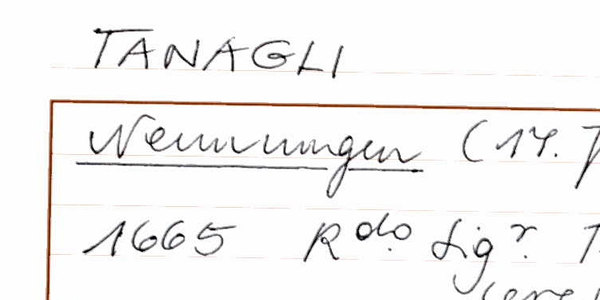 TANAGLI
Nennungen (17.
1665 R.do Sig.r